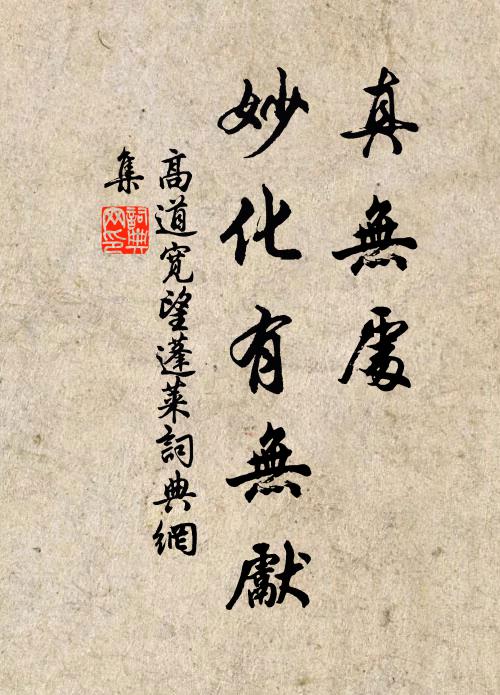 真無處
妙化有無獻
高道寬望蓬萊詞典網
集
詞典
网印